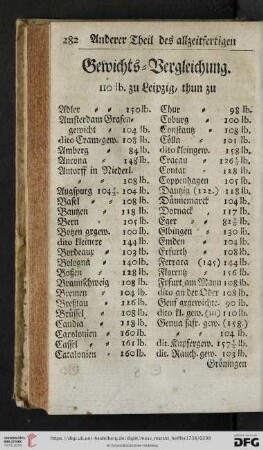 282 Anderer Theil des allzeitfertigen
Gewichts-Vergleichung.
110 lb. zu Leipzig, thun zu
Adler 150 lb.
Amsterdam Grafen-
gewicht 104 lb.
dito Cram-gew. 108 lb.
Amberg 84 lb.
Ancona 148 lb.
Antorff in Niederl.
108 lb.
Augspurg 104½. 104 lb.
Basel 108 lb.
Bautzen 118 lb.
Bern 105 lb.
Botzen grgew. 100 lb.
dito kleinere 144 lb.
Bordeaux 103 lb.
Bologna 140 lb.
Botzen 128 lb.
Braunschweig 108 lb.
Bremen 104 lb.
Breslau 116 lb.
Brüssel 108 lb.
Candia 118 lb.
Carolonien 160 lb.
Cassel 161 lb.
Catalonien 160 lb.
Chur 98 lb.
Coburg 100 lb.
Constantz 108 lb.
Cölln 101 lb.
dito kleingew. 158 lb.
Cracau 126½ lb.
Contat 118 lb.
Coppenhagen 105 lb.
Dantzig (122.) 118 lb.
Dännemarck 104 lb.
Dornack 117 lb.
Eger 81½ lb.
Elbingen 130 lb.
Emden 104 lb.
Erfurth 108 lb.
Ferrara (145) 144 lb.
Florentz 156 lb.
Frfurt am Mayn 108 lb.
dito an der Oder 108 lb.
Genf argewichte. 90 lb.
dito kl. gew. (110.) 108 lb.
Genua saff. gew. (158.)
104 lb.
dit. Kupfergew. 157½ lb.
dit. Rauch. gew. 103 lb.
Gröningen